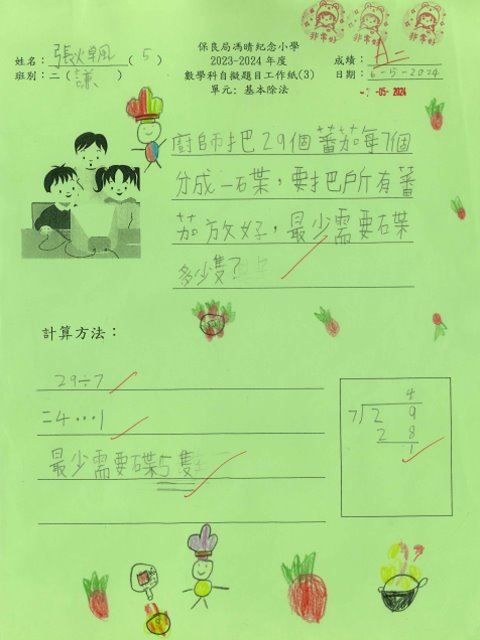 保良局馮晴紀念小學
2023-2024 年度
數學科自擬題目工作紙(3)
單元: 基本除法
姓名: 張 (5)
班別: 二 (謙)
成績: A-
日期: 6-5-2024
-7-05-2024
非常好 非常好 非常好
廚師把29個蕃茄每7個
分成一碟,要把戶所有蕃
茄放好,最少需要碟
多少隻?
計算方法:
29÷7
=4...1
最少需要碟5隻
4
7 2 9
2 8
1